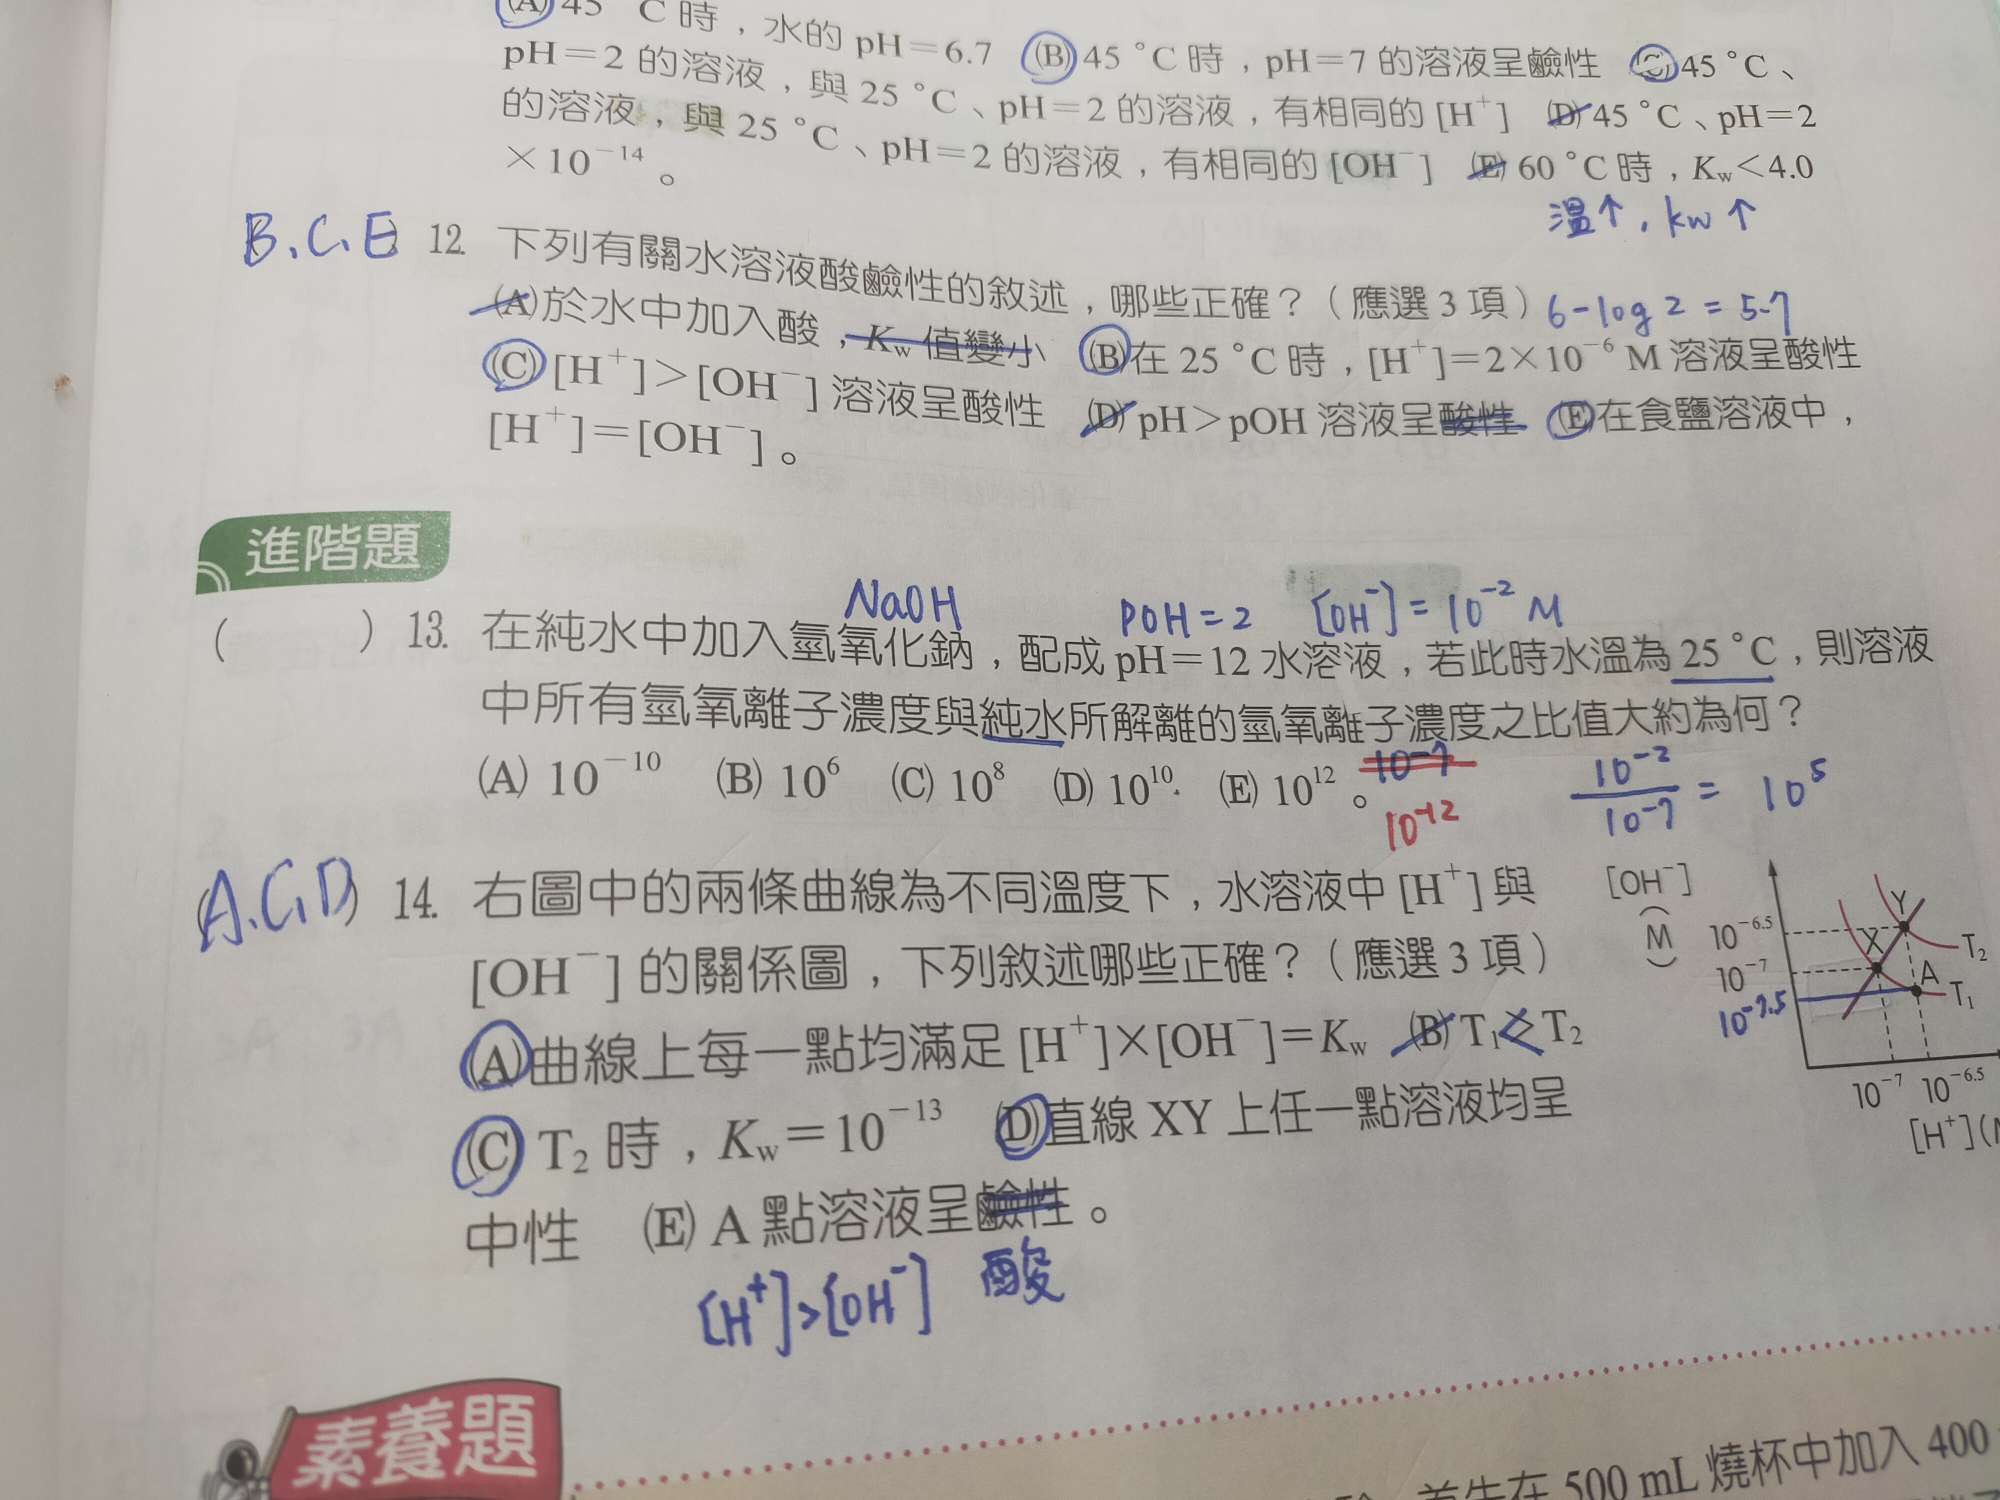 (A) 45 °C 時，水的 pH＝6.7 (B) 45 °C 時，pH＝7 的溶液呈鹼性 (C) 45 °C、
pH＝2 的溶液，與 25 °C、pH＝2 的溶液，有相同的 [H⁺] (D) 45 °C、pH＝2
的溶液，與 25 °C、pH＝2 的溶液，有相同的 [OH⁻] (E) 60 °C 時，Kw＜4.0
×10⁻¹⁴。
溫↑, kw↑
B.C.E 12. 下列有關水溶液酸鹼性的敘述，哪些正確？（應選 3 項）
6-log 2 = 5.7
(A)於水中加入酸，Kw 值變小 (B)在 25 °C 時，[H⁺]＝2×10⁻⁶ M 溶液呈酸性
(C) [H⁺]＞[OH⁻] 溶液呈酸性 (D) pH＞pOH 溶液呈酸性 (E)在食鹽溶液中，
[H⁺]＝[OH⁻]。
進階題
NaOH POH = 2 [OH⁻] = 10⁻² M
( ) 13. 在純水中加入氫氧化鈉，配成 pH＝12 水溶液，若此時水溫為 25 °C，則溶液
中所有氫氧離子濃度與純水所解離的氫氧離子濃度之比值大約為何？
(A) 10⁻¹⁰ (B) 10⁶ (C) 10⁸ (D) 10¹⁰ (E) 10¹²。
10⁻⁷
10⁻¹²
10⁻²/10⁻⁷ = 10⁵
(A.C.D) 14. 右圖中的兩條曲線為不同溫度下，水溶液中 [H⁺] 與
[OH⁻] 的關係圖，下列敘述哪些正確？（應選 3 項）
(A)曲線上每一點均滿足 [H⁺]×[OH⁻]＝Kw (B) T₁＞T₂
(C) T₂ 時，Kw＝10⁻¹³ (D)直線 XY 上任一點溶液均呈
中性 (E) A 點溶液呈鹼性。
[H⁺]>[OH⁻] 酸
[OH⁻]
(M)
10⁻⁶·⁵
10⁻⁷
10⁻⁷·⁵
Y
X
A
T₂
T₁
10⁻⁷ 10⁻⁶·⁵
[H⁺]
素養題
500 mL 燒杯中加入 400